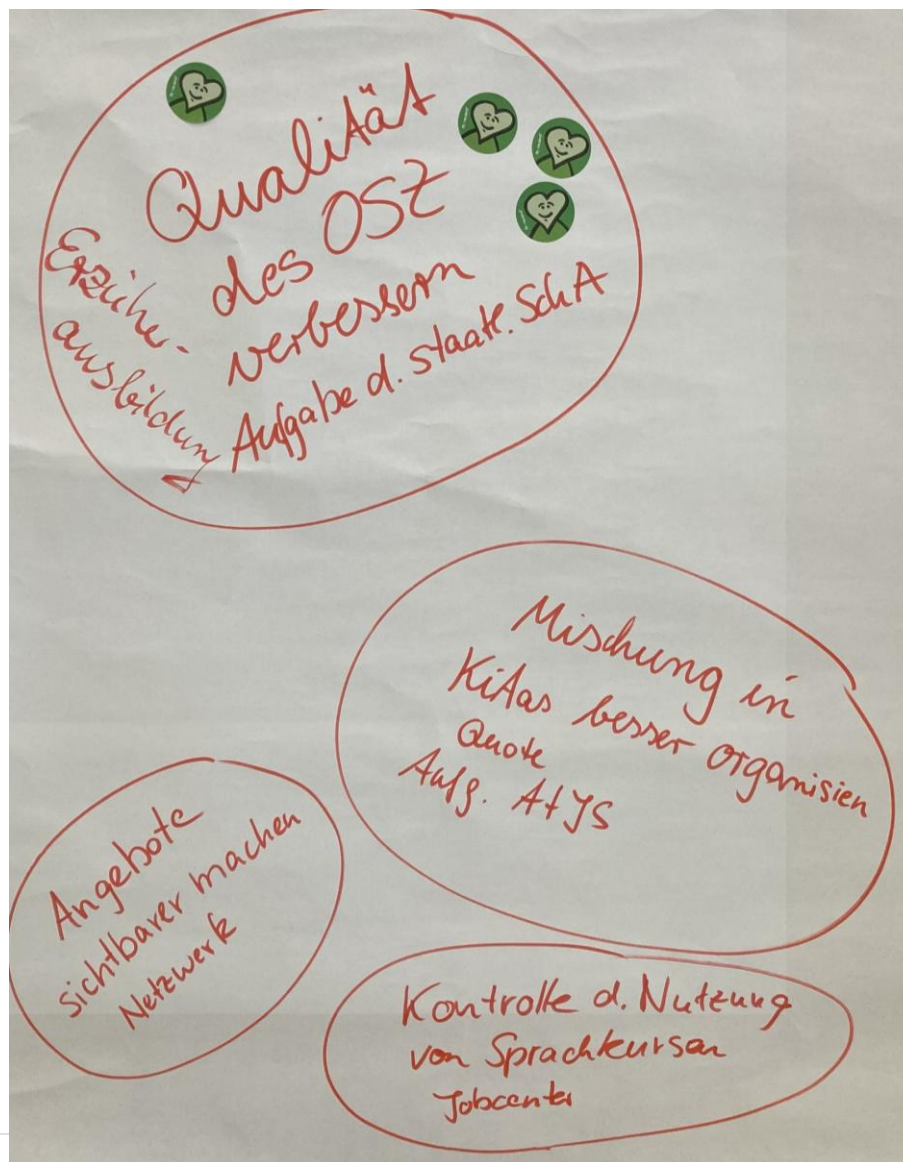 Qualität
des OSZ
verbessern
Aufgabe d. staatl. SchA
Erzieher-
ausbildung
Mischung in
KiTas besser organisien
Quote
Aufg. AfJS
Angebote
sichtbarer machen
Netzwerk
Kontrolle d. Nutzung
von Sprachkursen
Jobcenter